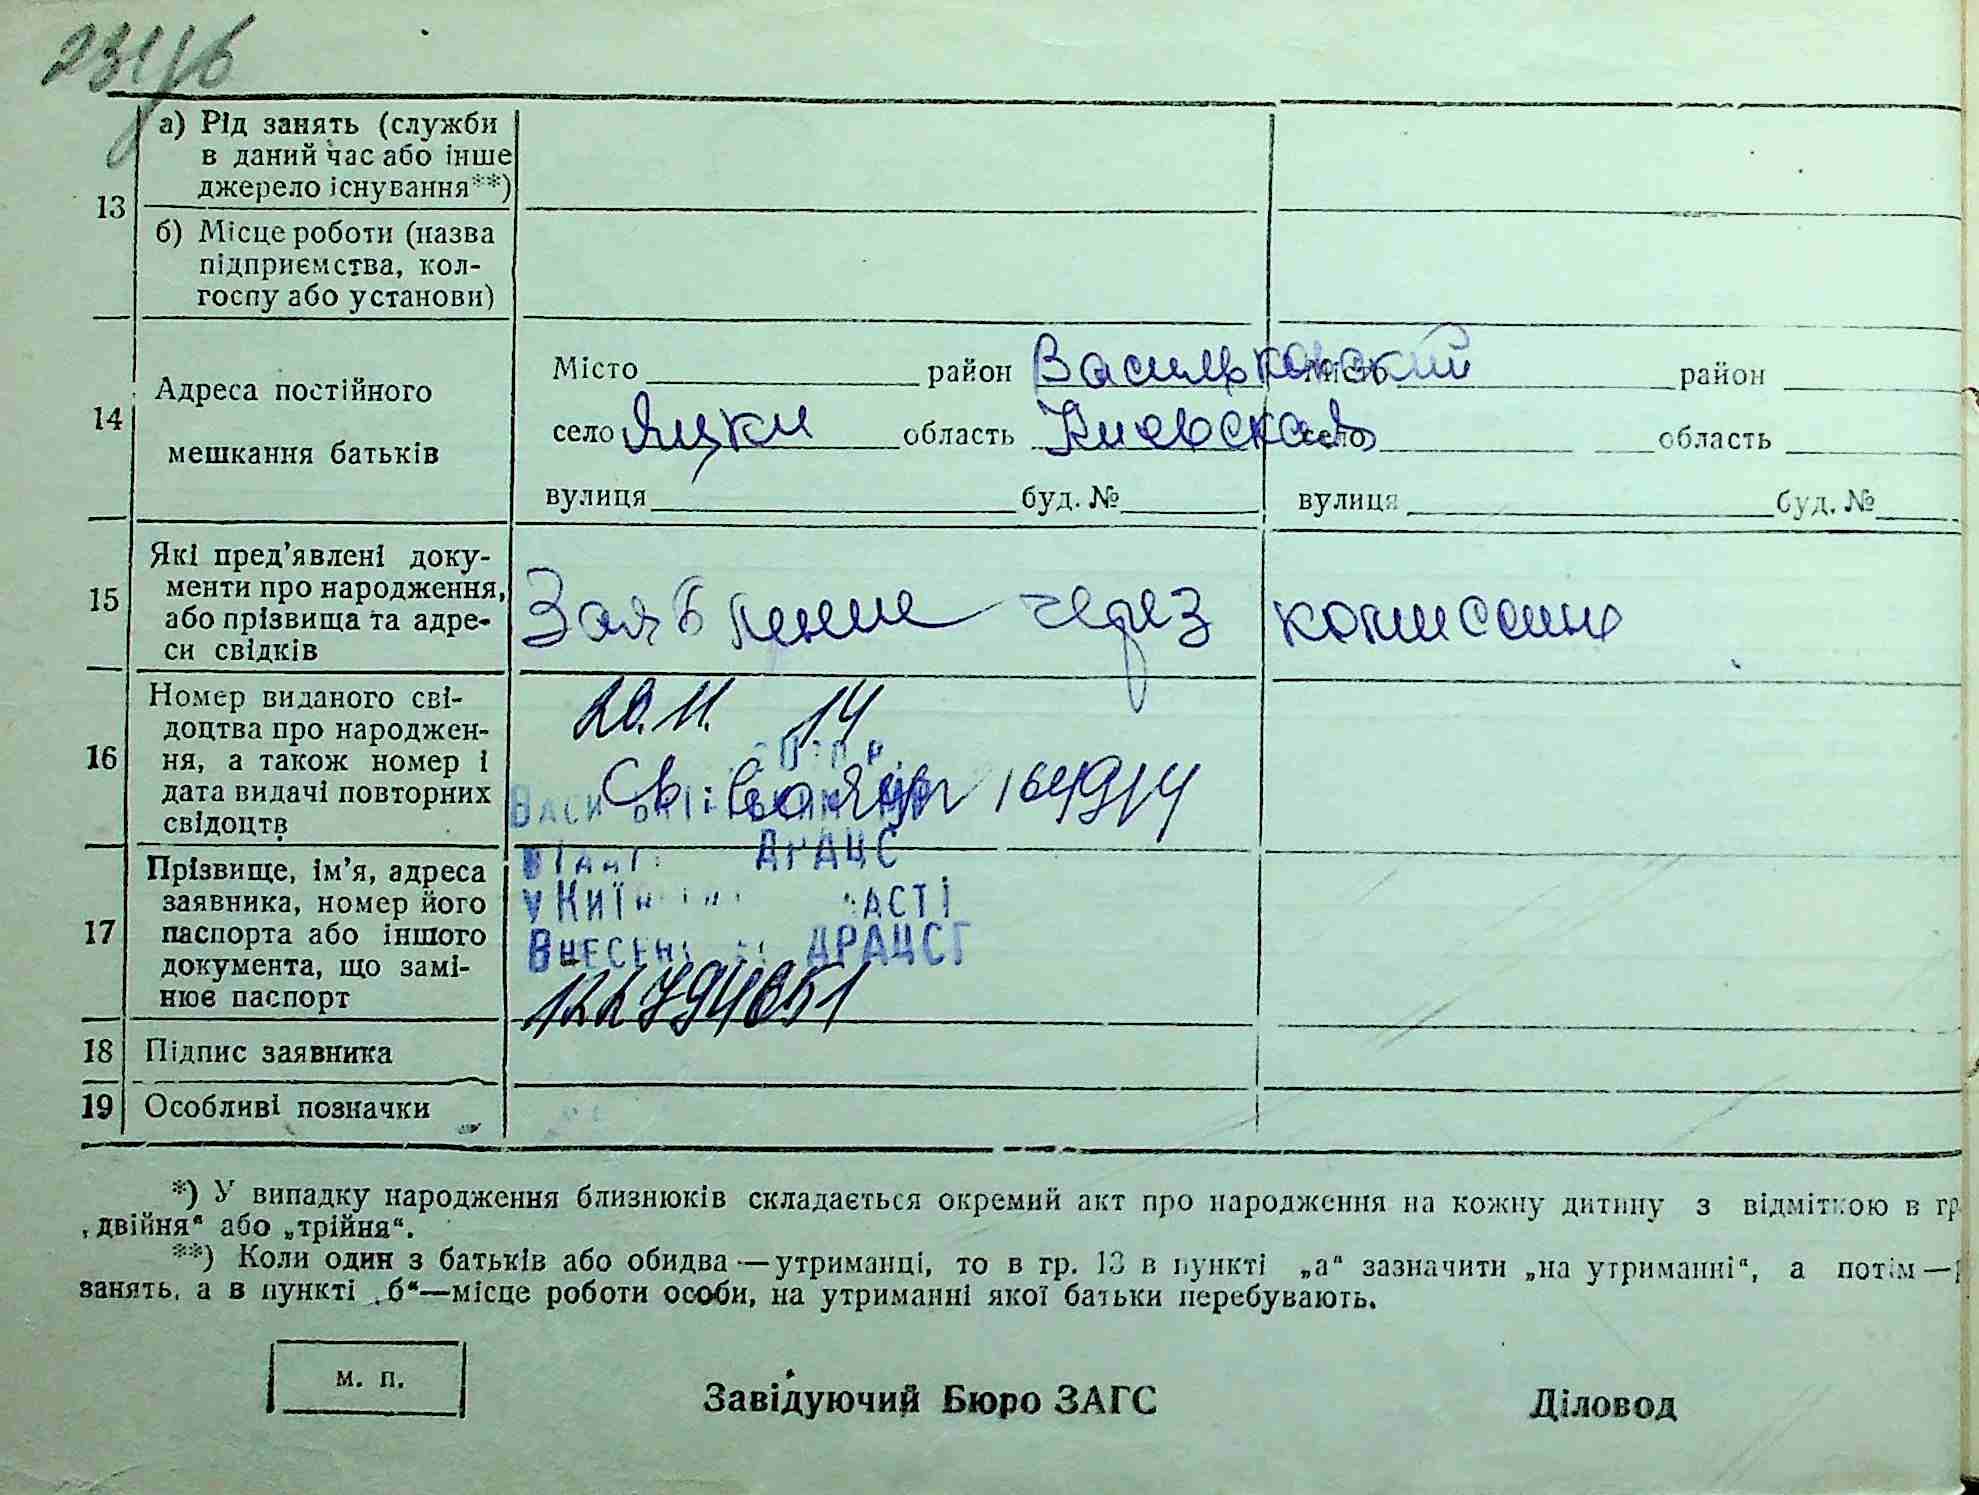 231/б
13
а) Рід занять (служби
в даний час або інше
джерело існування**)
б) Місце роботи (назва
підприємства, кол-
госпу або установи)
14
Адреса постійного
мешкання батьків
Місто район Васильковский Місто район
село Яцки область Киевская село область
вулиця буд. № вулиця буд. №
15
Які пред’явлені доку-
менти про народження,
або прізвища та адре-
си свідків
Заявление через комиссию
16
Номер виданого сві-
доцтва про народжен-
ня, а також номер і
дата видачі повторних
свідоцтв
20.11. 14
1649/14
ДРАЦС
17
Прізвище, ім’я, адреса
заявника, номер його
паспорта або іншого
документа, що замі-
нює паспорт
ДРАЦСГ
18 Підпис заявника
19 Особливі позначки
*) У випадку народження близнюків складається окремий акт про народження на кожну дитину з відміткою в гр
„двійня“ або „трійня“.
**) Коли один з батьків або обидва—утриманці, то в гр. 13 в пункті „а“ зазначити „на утриманні“, а потім—
занять, а в пункті „б“—місце роботи особи, на утриманні якої батьки перебувають.
м. п.
Завідуючий Бюро ЗАГС Діловод